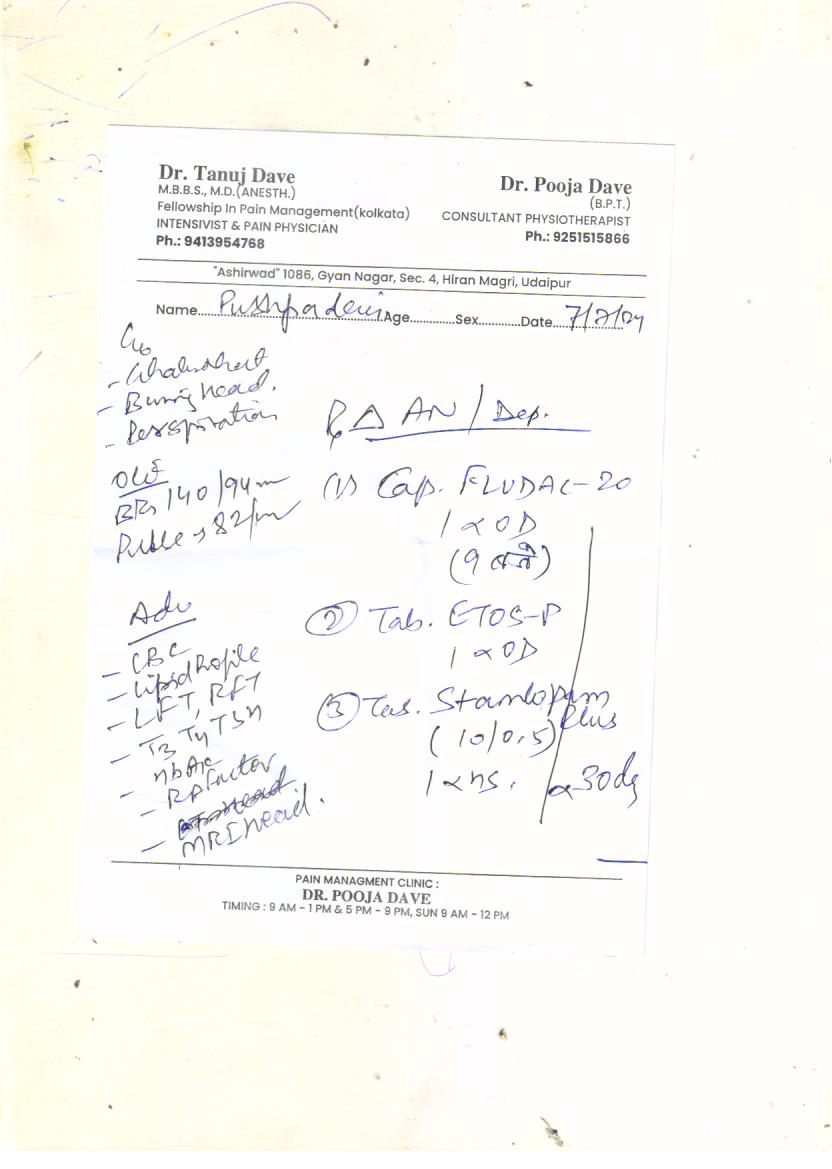 Dr. Tanuj Dave
M.B.B.S., M.D.(ANESTH.)
Fellowship In Pain Management(kolkata)
INTENSIVIST & PAIN PHYSICIAN
Ph.: 9413954768
Dr. Pooja Dave
(B.P.T.)
CONSULTANT PHYSIOTHERAPIST
Ph.: 9251515866
"Ashirwad" 1086, Gyan Nagar, Sec. 4, Hiran Magri, Udaipur
Name Pushpa devi Age Sex Date 7/7/24
C/o
- Ghabrahat
- Burning head.
- Perspiration
O/E
BP→ 140/94
Pulse → 82/m
Adv
- CBC
- Lipid Profile
- LFT, RFT
- T3 T4 TSH
- HbA1c
- RA Factor
- MRI head.
Rx Δ AN / Dep.
(1) Cap. FLUDAC-20
1 x OD
② Tab. ETOS-P
1 x OD
③ Tab. Stamlopam Plus
(10/0.5)
1 x HS.
x 30 dy
PAIN MANAGMENT CLINIC :
DR. POOJA DAVE
TIMING : 9 AM - 1 PM & 5 PM - 9 PM, SUN 9 AM - 12 PM